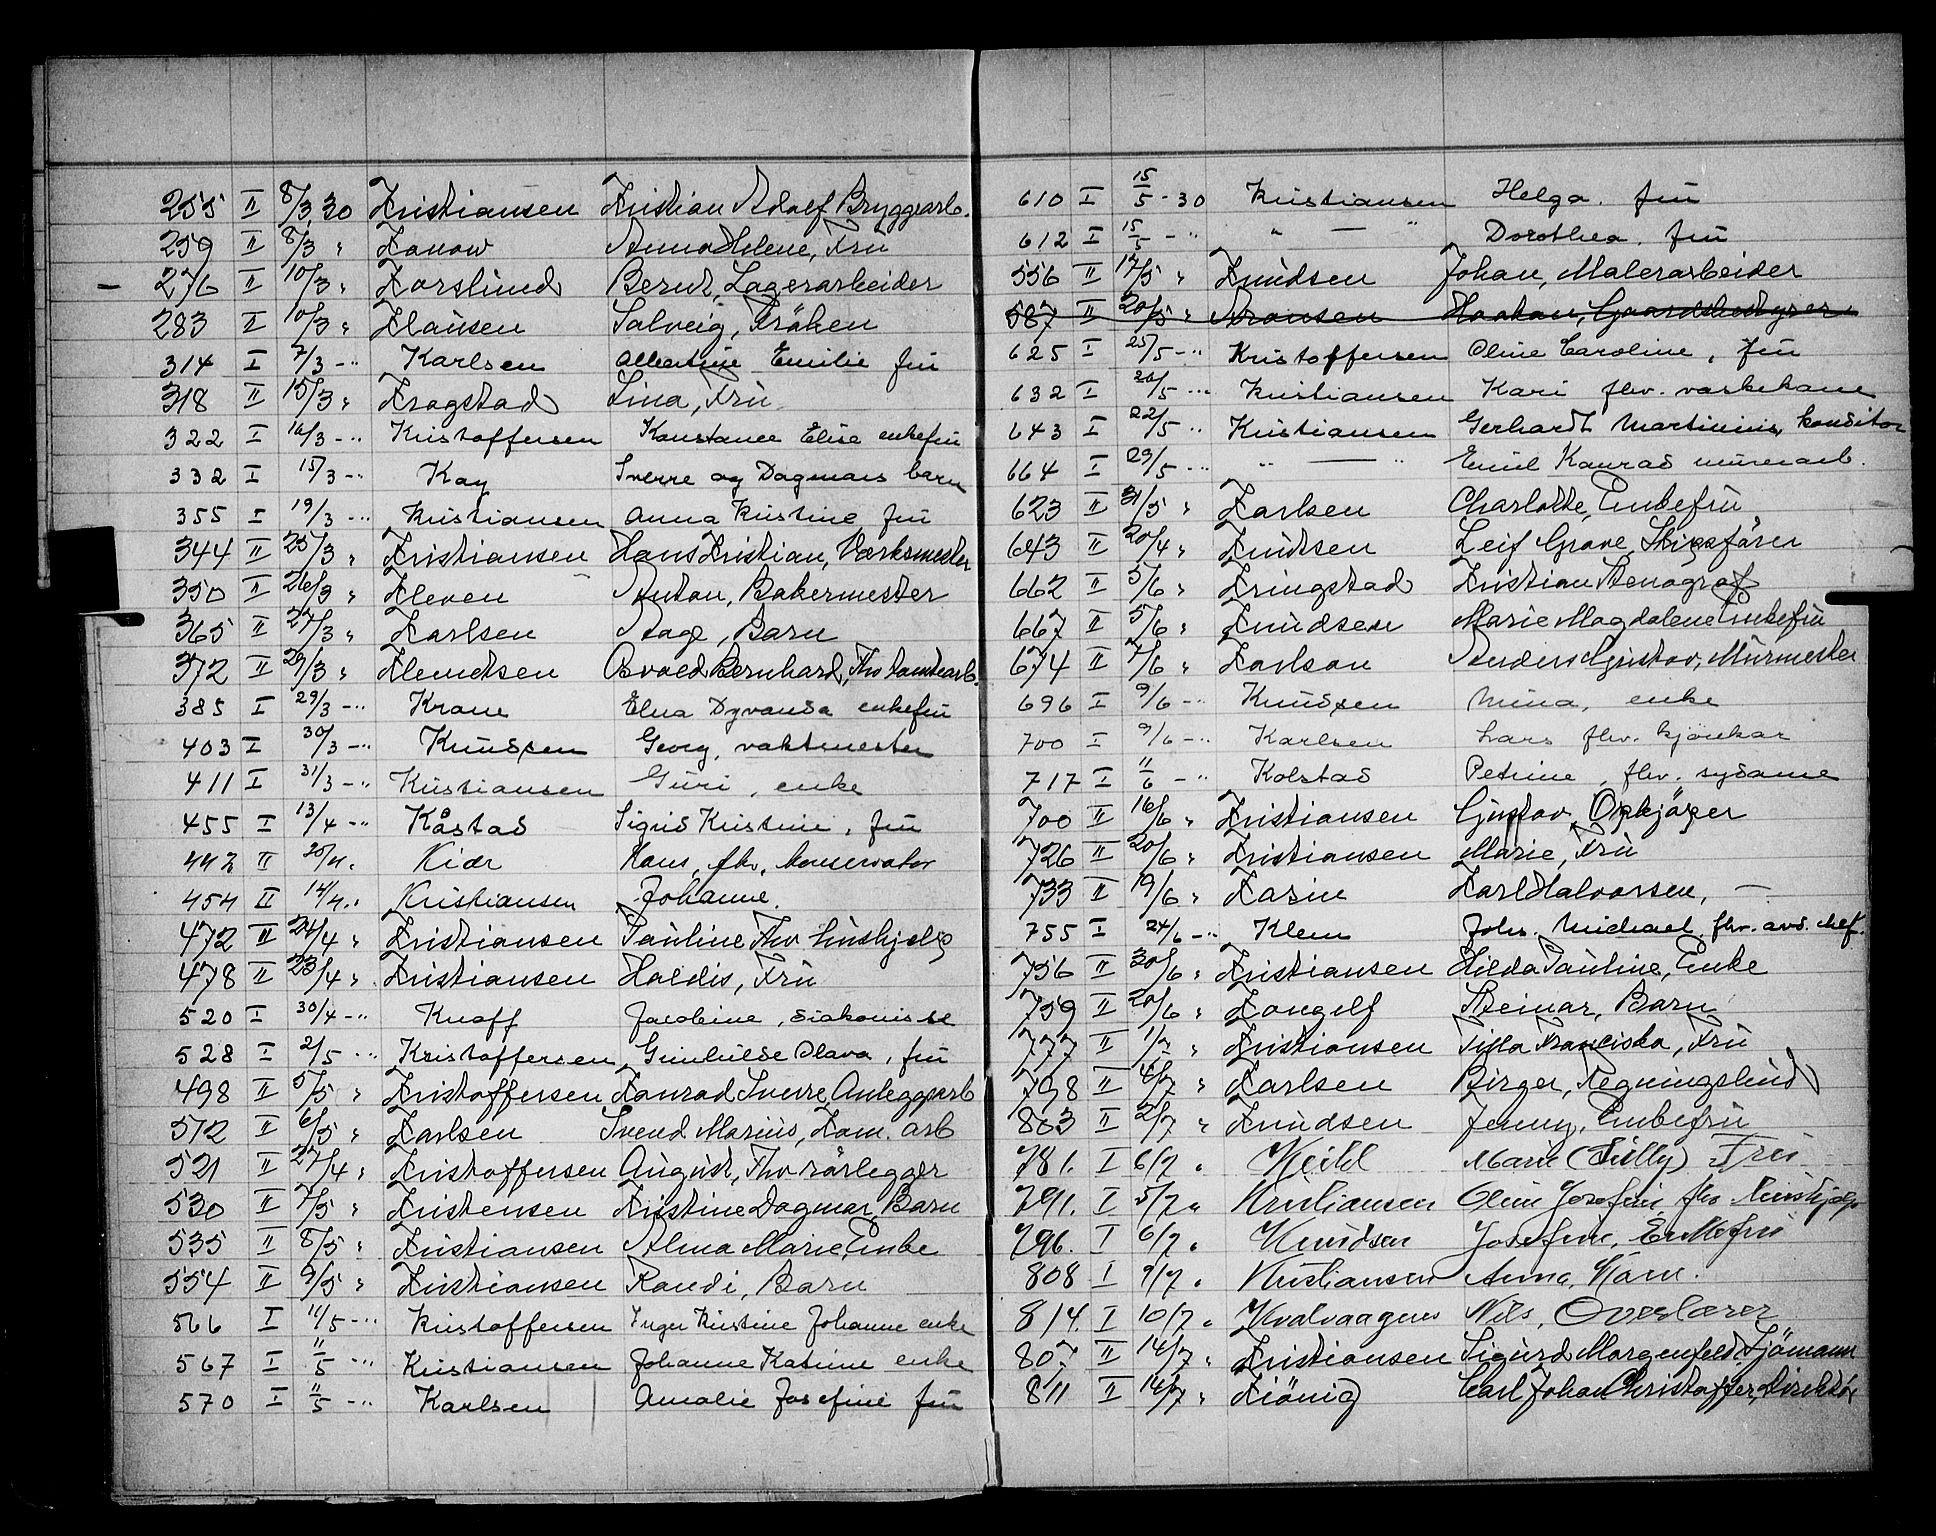 255 II 8/3 30 Kristiansen Kristian Adolf Bryggearb.
259 II 8/3 " Kanow Anna Helene, Fru
- 276 II 10/3 " Karslund Bernt, Lagerarbeider
283 II 10/3 " Klausen Solveig, Fröken
314 I 7/3 -" Karlsen Albertine Emilie fru
318 II 15/3 " Kragstad Lina, Fru
322 I 16/3 -" Kristoffersen Konstance Elise enkefru
332 I 15/3 -" Kay Sverre og Dagmars barn
355 I 19/3 -" Kristiansen Anna Kristine fru
344 II 25/3 " Kristiansen Hans Kristian, Værksmester
350 II 26/3 " Kleven Anton, Bakermester
365 II 27/3 " Karlsen Aage, Barn
372 II 29/3 " Klemetsen Osvald Bernhard, Fhv
385 I 29/3 -" Krane Elna Dyvanda enkefru
403 I 30/3 -" Knudsen Georg, vaktmester
411 I 31/3 -" Kristiansen Guri, enke
455 I 13/4 -" Kåstad Sigrid Kristine, fru
442 II 20/4 " Kiær Hans, fhv. konservator
454 II 14/4 " Kristiansen Johanne.
472 II 24/4 " Kristiansen Pauline Fhv hushjelp
478 II 23/4 " Kristiansen Haldis, Fru
520 I 30/4 -" Knoff Jacobine, diakonisse
528 I 2/5 -" Kristoffersen Gunhilde Olava, fru
498 II 5/5 " Kristoffersen Konrad Sverre, Anleggsarb
512 II 6/5 " Karlsen Svend Marius, Kom. arb
521 II 27/4 " Kristoffersen August, Fhv rörlegger
530 II 7/5 " Kristensen Kristine Dagmar, Barn
535 II 8/5 " Kristiansen Alma Marie Enke
554 II 9/5 " Kristiansen Randi, Barn
566 I 11/5 -" Kristoffersen Inger Kristine Johanne enke
567 I 11/5 -" Kristiansen Johanne Katrine enke
570 I 11/5 -" Karlsen Amalie Josefine fru
610 I 15/5 - 30 Kristiansen Helga. fru
612 I 15/5 -" " — " Dorothea. fru
556 II 17/5 " Knudsen Johan, Malerarbeider
587 II 20/5 " Aronsen Haakon, Gaardsbestyrer
625 I 25/5 -" Kristoffersen Oline Caroline, fru
632 I 20/5 -" Kristiansen Kari fhv. vaskekone
643 I 22/5 " Kristiansen Gerhardt Martinius, konditor
664 I 29/5 -" " — " Emil Konrad murerarb.
623 II 31/5 " Karlsen Charlotte, Enkefru
643 II 20/4 " Knutsen Leif Grane, Skipsförer
662 II 5/6 " Kringstad Kristian Stenograf
667 II 5/6 " Knudsen Marie Magdalene Enkefru
674 II 7/6 " Karlson Anders Gustav, Murmester
696 I 9/6 -" Knudsen Mina, enke
700 I 9/6 -" Karlsen Lars fhv. kjörekar
717 I 11/6 -" Kolstad Petrine, fhv. sydame
700 II 16/6 " Kristiansen Gustav, Opkjöper
726 II 20/6 " Kristiansen Marie, Fru
733 II 19/6 " Karin Karl Halvorsen, —
755 I 24/6 -" Klem Johs. Michael. fhv. avd. chef.
756 II 30/6 " Kristiansen Hilda Pauline, Enke
759 II 20/6 " Kongelf Steinar, Barn
777 II 1/7 " Kristiansen Tilla Franciska, Fru
798 II 4/7 " Karlsen Birger, Regningsbud
803 II 2/7 " Knudsen Jenny, Enkefru
781. I 6/7 " Keihl Marie (Lilly) Fru
791. I 5/7 " Kristiansen Oline Josefine, fhv hushjelp
796. I 6/7 " Knudsen Josefine, Enkefru
808 I 9/7 " Kristiansen Anna, Barn.
814. I 10/7 " Kvalvaagnes Nils, Overlærer
807 II 14/7 " Kristiansen Sigurd Morgenfeld, Sjömann
811 II 14/7 " Kiönig Carl Johan Christoffer, Direktör